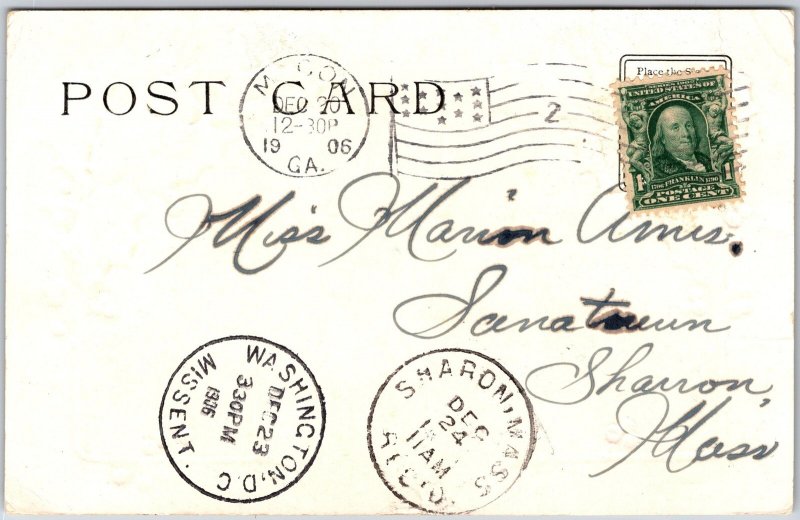 POST CARD
MACON
DEC 20
12-30P
1906
GA.
2
Place the
UNITED STATES OF
AMERICA
1 1
1706 FRANKLIN 1790
POSTAGE
ONE CENT
Miss Marion Ames.
Sanatarium
Sharon,
Mass
WASHINGTON, D.C.
DEC 23
330PM
1906
MISSENT
SHARON, MASS
DEC
24
11AM
REC'D.